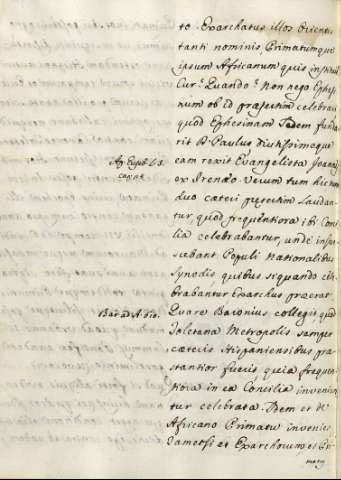 to Exarchatus illos Orien-
tanti nominis, Primatumque
ipsum Africanum quis institui
Cur.ᵉ Quando.ᵉ Non nego Ephesi-
num ob id celebrari
quod Ephesinam Sedem funda-
rit D. Paulus diutissimeque
eam rexit Evangelista Joannes
Ap. Euseb. L. 3.
ex Irenæo Verum tum hic tum
duo cæteri Laudan-
tur, quod frequentiora ibi Conci-
lia celebrabantur, unde
Populi nationalibus
Synodis, quibus siquando cele-
brabantur Exarchus præerat
Bar. ad A.
Quare Baronius collegit quod
Toletana Metropolis semper
cæteris Hispaniensibus præ-
stantior fuerit quia frequen-
tiora in ea Concilia inveniun-
tur celebrata. Idem et de
Africano Primatu invenies
Tametsi et Exarchorum, et Pri-
matu